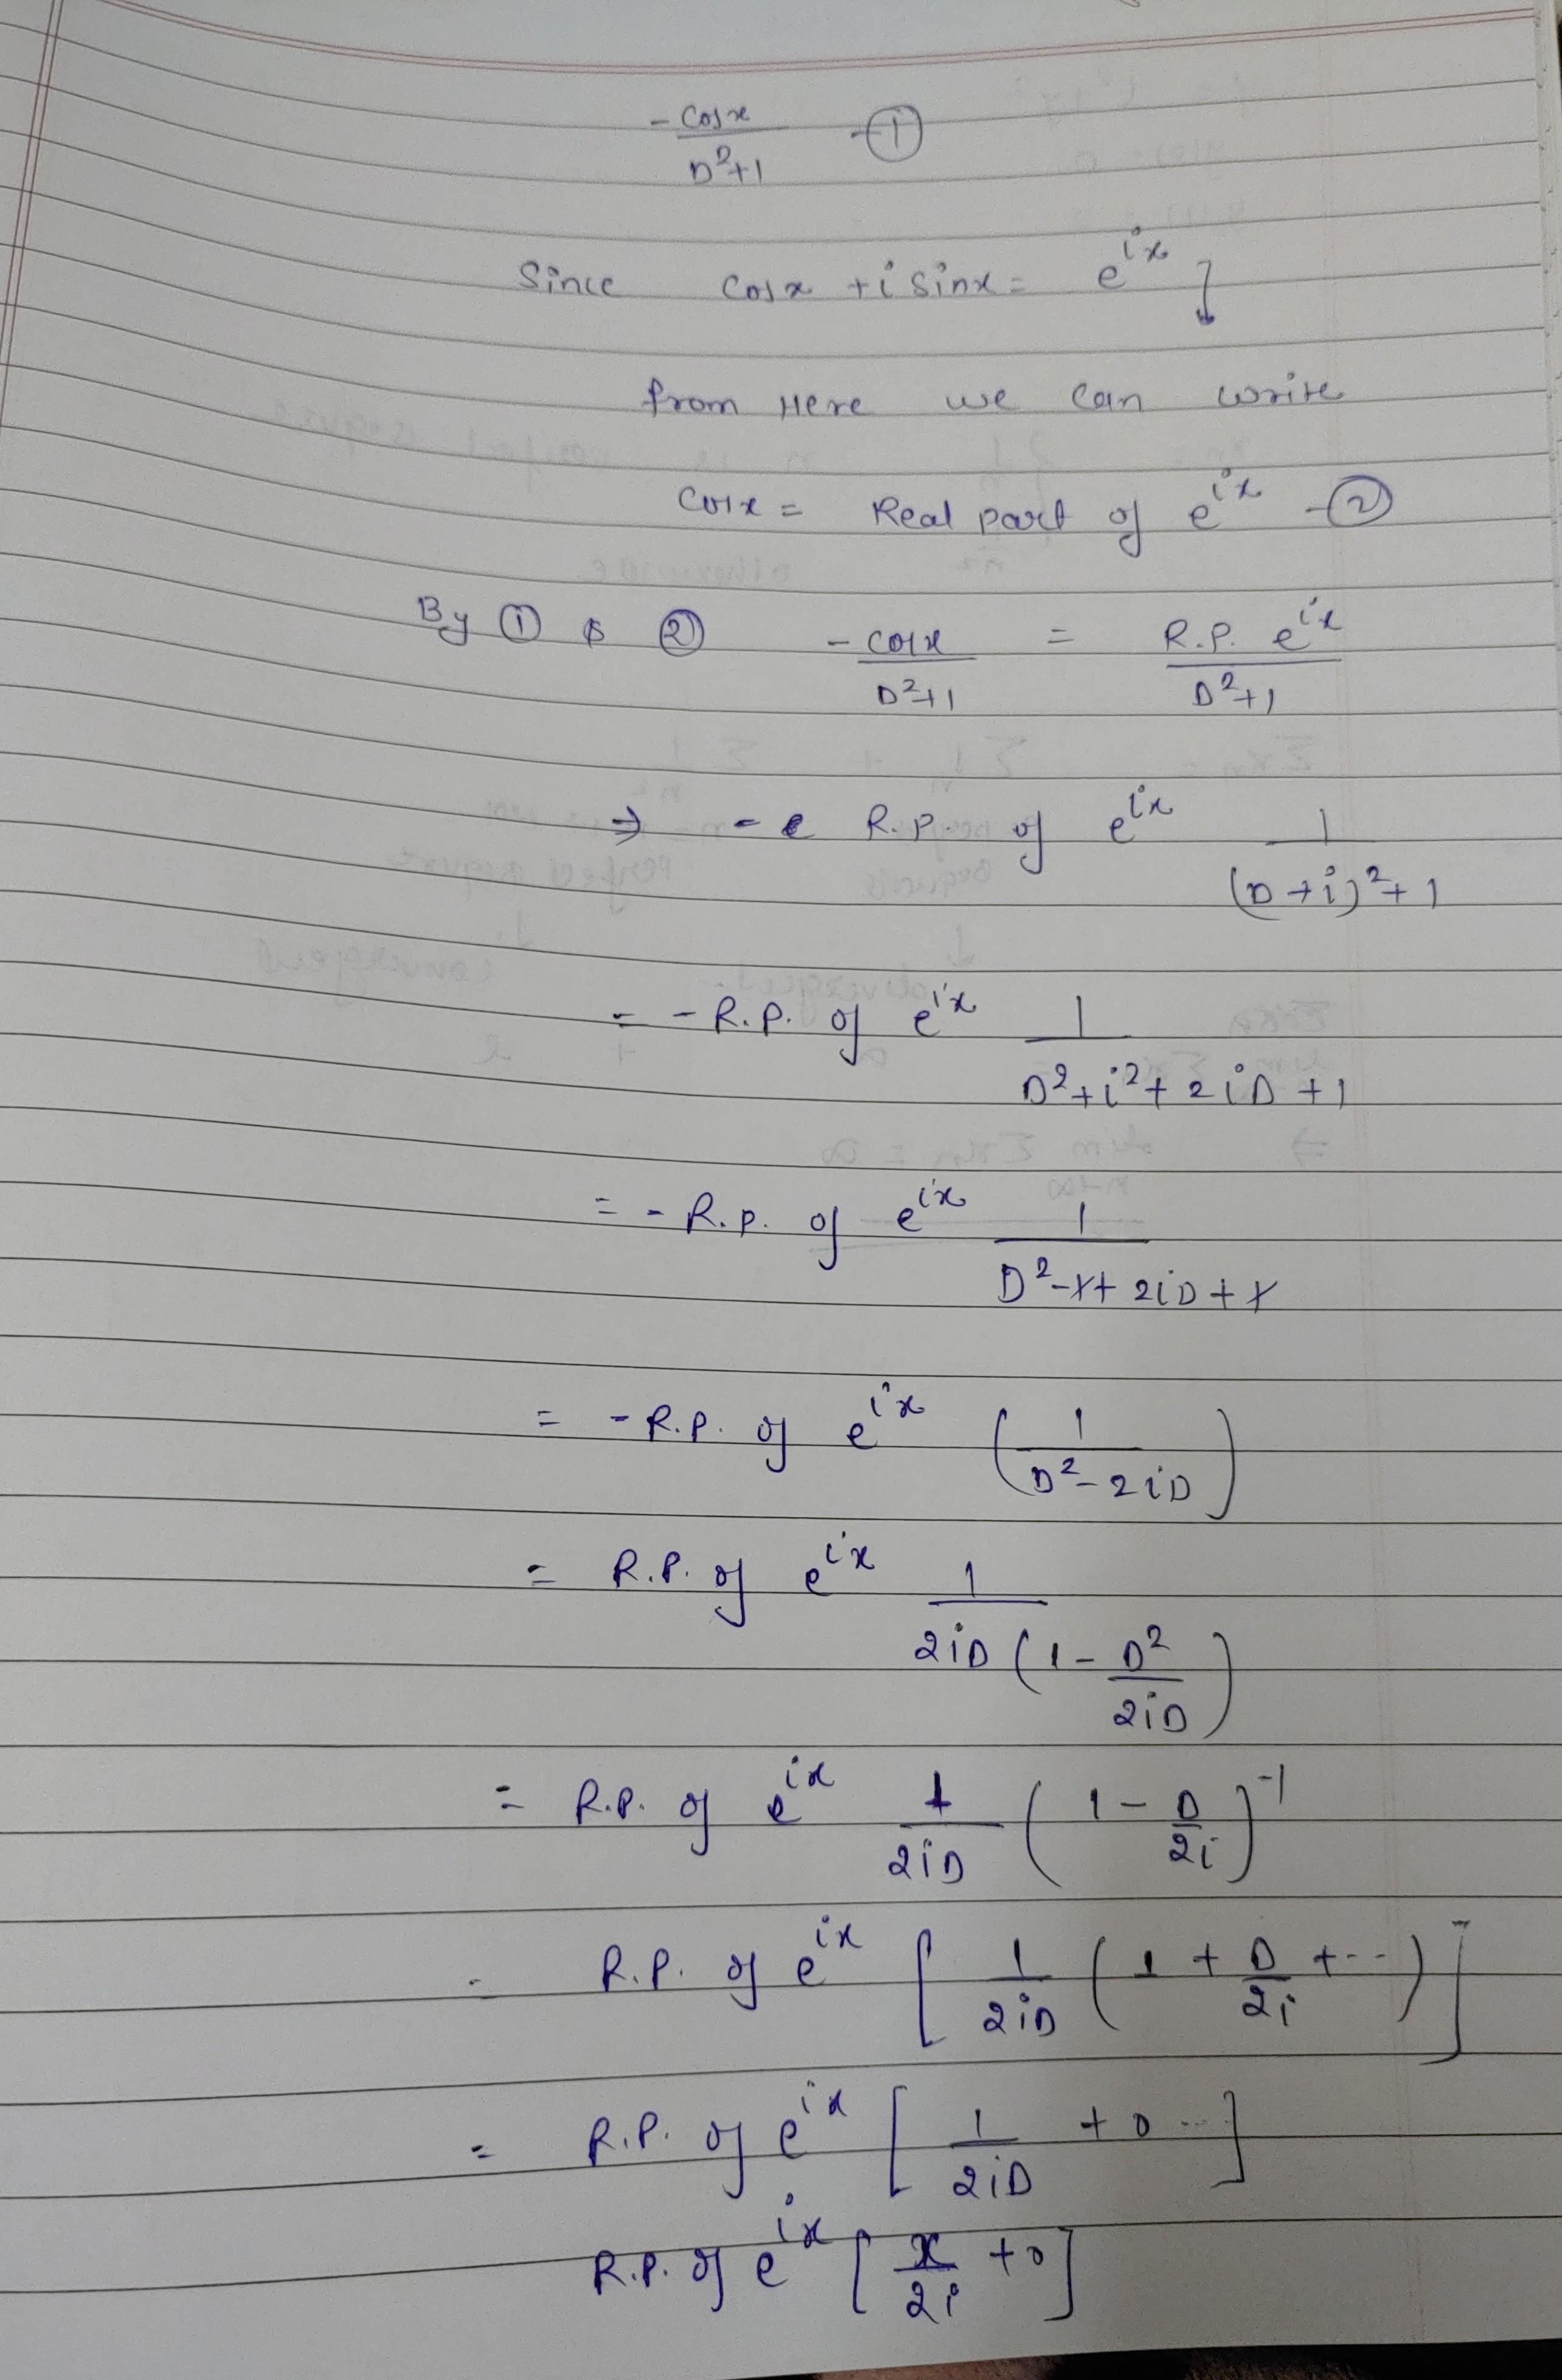 - cosx / D²+1 - ①
Since cosx + i sinx = e^{ix}
from Here we can write
cosx = Real part of e^{ix} - ②
By ① & ② - cosx / D²+1 = R.P. e^{ix} / D²+1
⇒ - R.P. of e^{ix} 1 / (D+i)²+1
= - R.P. of e^{ix} 1 / D²+i²+2iD+1
= - R.P. of e^{ix} 1 / D²-1+2iD+1
= - R.P. of e^{ix} (1 / D²-2iD)
= R.P. of e^{ix} 1 / 2iD (1 - D²/2iD)
= R.P. of e^{ix} 1/2iD (1 - D/2i)^{-1}
= R.P. of e^{ix} [1/2iD (1 + D/2i + ---)]
= R.P. of e^{ix} [1/2iD + 0 ---]
R.P. of e^{ix} [x/2i + 0]